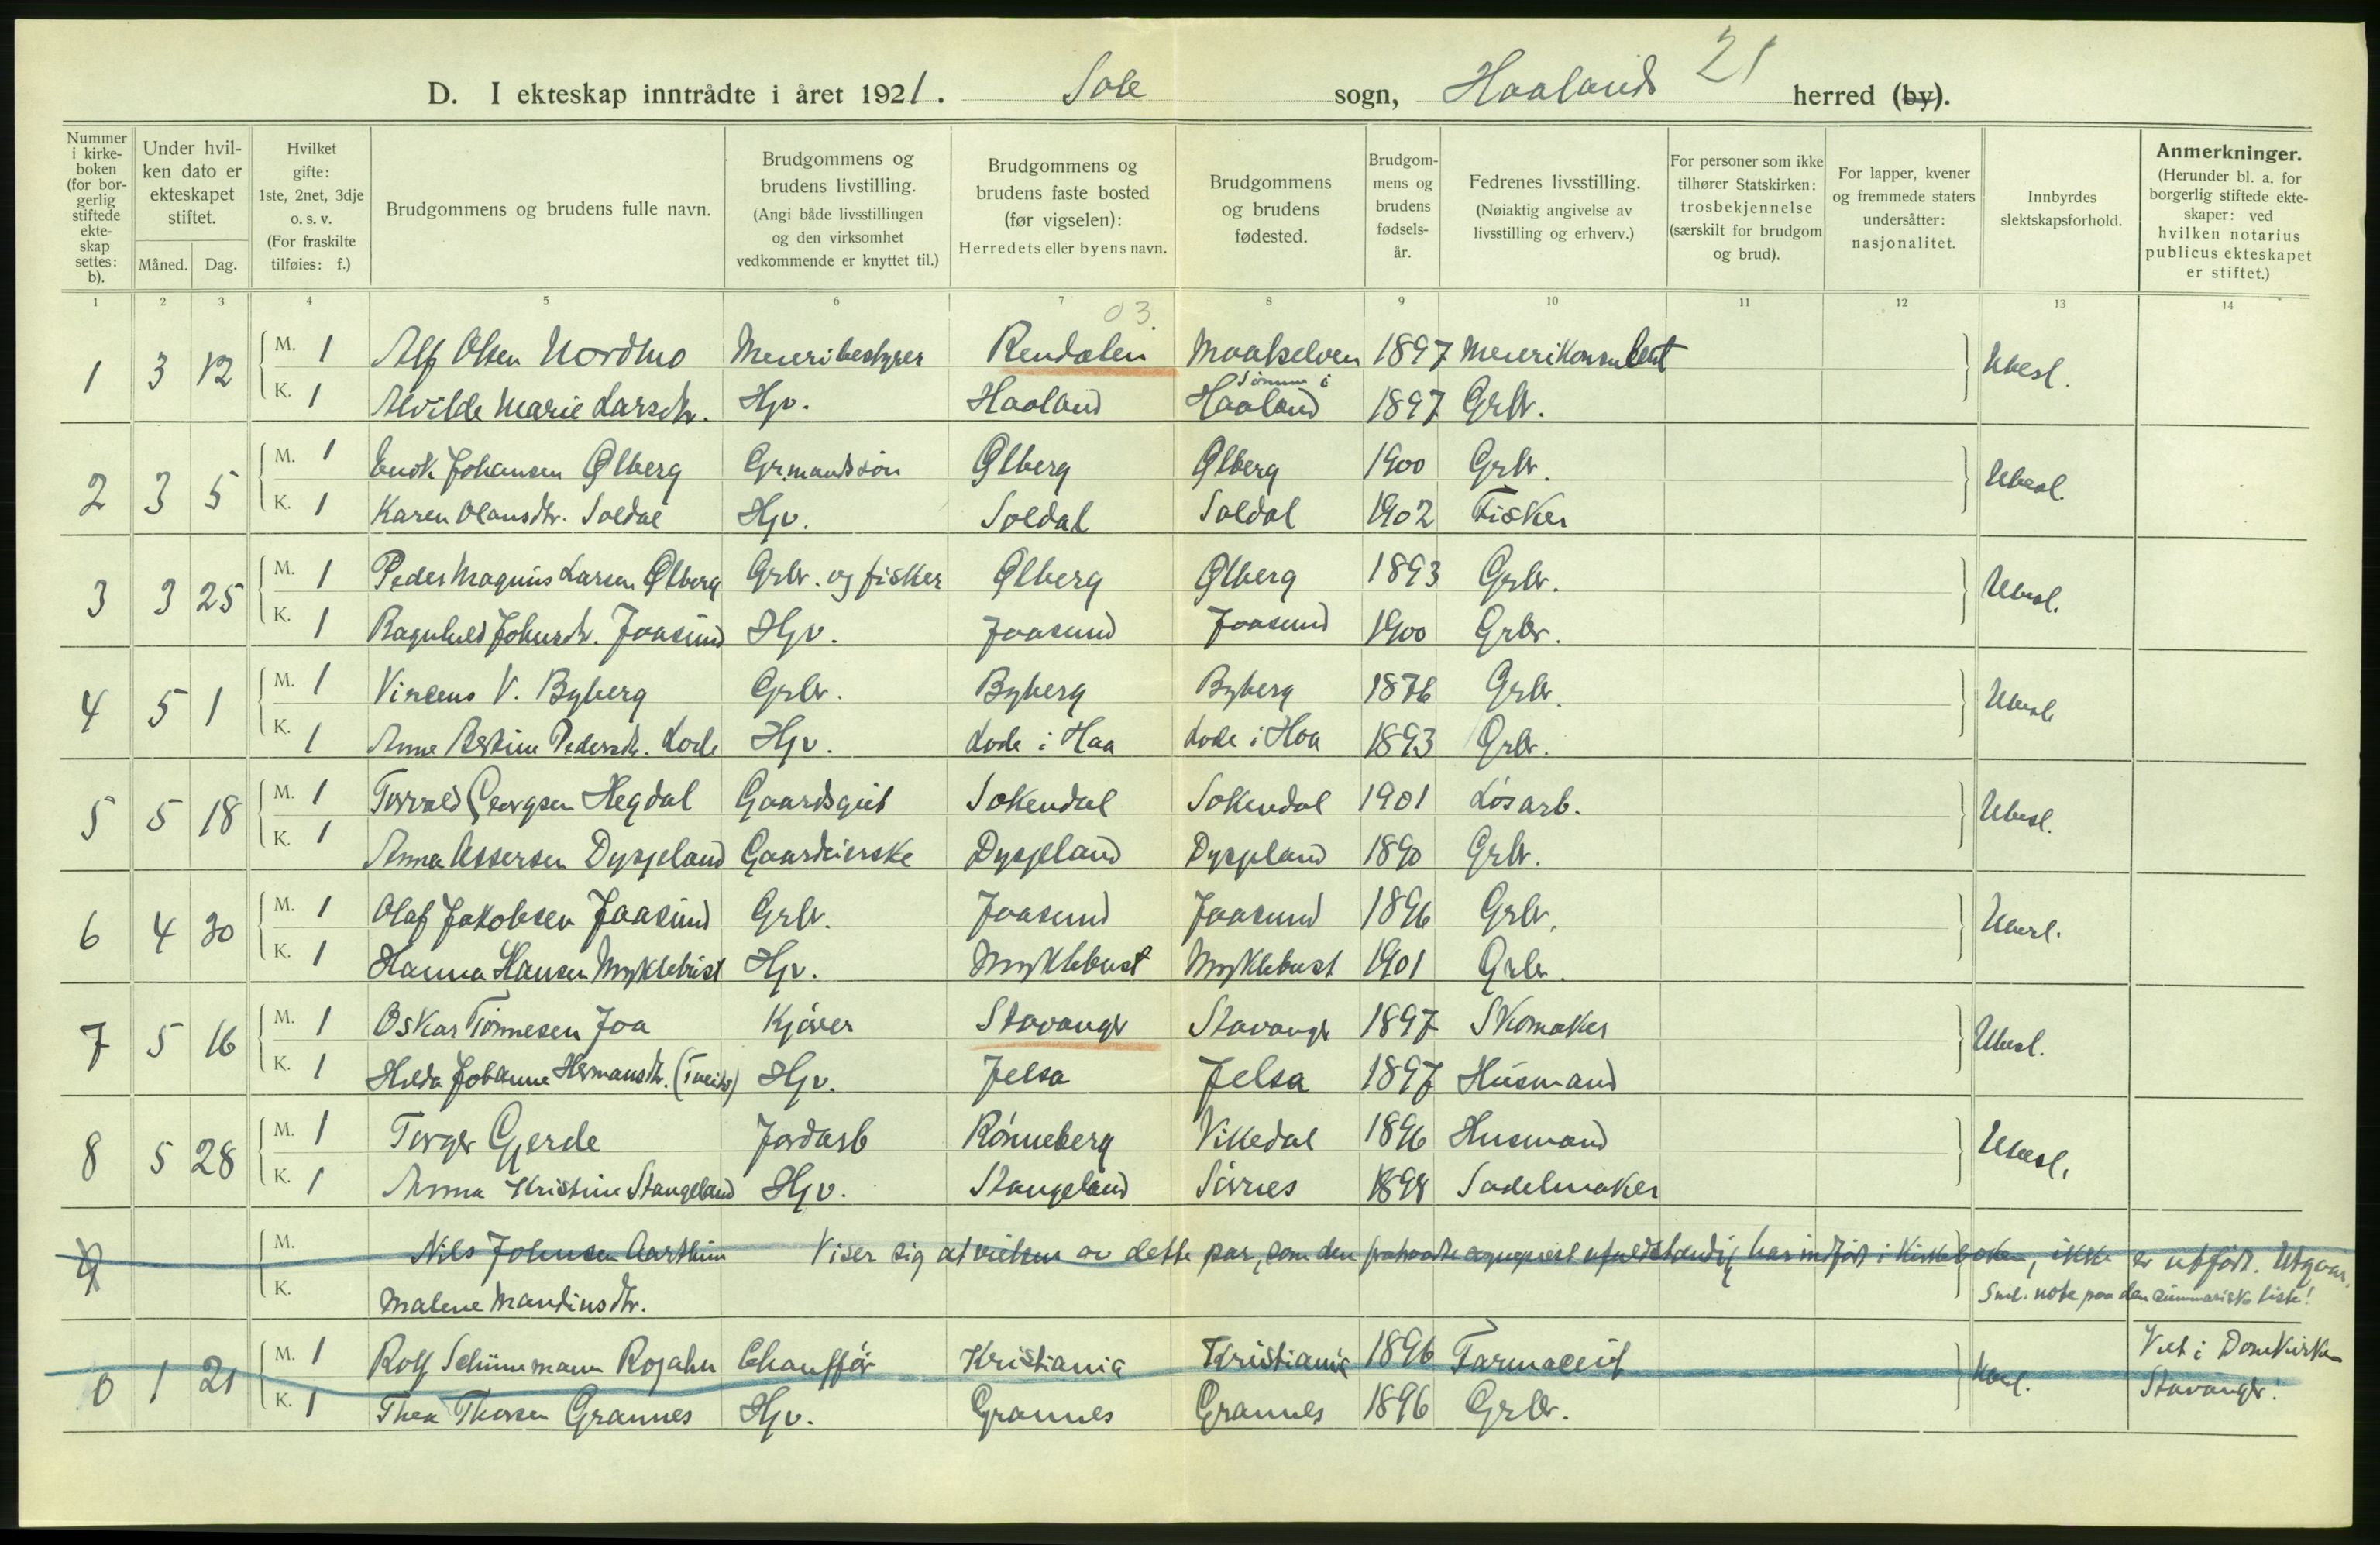 21
D. I ekteskap inntrådte i året 1921. Sole sogn, Haalands herred (by).
Nummer i kirke-boken (for bor-gerlig stiftede ekte-skap settes: b).
Under hvil-ken dato er ekteskapet stiftet.
Måned. Dag.
Hvilket gifte: 1ste, 2net, 3dje o. s. v. (For fraskilte tilføies: f.)
Brudgommens og brudens fulle navn.
Brudgommens og brudens livstilling. (Angi både livsstillingen og den virksomhet vedkommende er knyttet til.)
Brudgommens og brudens faste bosted (før vigselen): Herredets eller byens navn.
Brudgommens og brudens fødested.
Brudgom-mens og brudens fødsels-år.
Fedrenes livsstilling. (Nøiaktig angivelse av livsstilling og erhverv.)
For personer som ikke tilhører Statskirken: trosbekjennelse (særskilt for brudgom og brud).
For lapper, kvener og fremmede staters undersåtter: nasjonalitet.
Innbyrdes slektskapsforhold.
Anmerkninger. (Herunder bl. a. for borgerlig stiftede ekte-skaper: ved hvilken notarius publicus ekteskapet er stiftet.)
1 2 3 4 5 6 7 8 9 10 11 12 13 14
03.
1 3 12 M. 1 Alf Olsen Nordmo Meieribestyrer Rendalen Maalselven 1897 Meierikonsulent Ubesl.
Sømme i
K. 1 Alvilde Marie Larsdtr. Hjv. Haaland Haaland 1897 Grbr.
2 3 5 M. 1 Enok Johansen Ølberg Gr.mandssøn Ølberg Ølberg 1900 Grbr. Ubesl.
K. 1 Karen Olausdtr. Soldal Hjv. Soldal Soldal 1902 Fisker
3 3 25 M. 1 Peder Magnus Larsen Ølberg Grbr. og fisker Ølberg Ølberg 1893 Grbr. Ubesl.
K. 1 Ragnhild Johnsdtr. Jaasund Hjv. Jaasund Jaasund 1900 Grbr.
4 5 1 M. 1 Vincens V. Byberg Grbr. Byberg Byberg 1876 Grbr. Ubesl.
K. 1 Anne Bertine Pedersdtr. Lode Hjv. Lode i Haa Lode i Haa 1893 Grbr.
5 5 18 M. 1 Torvald Georgsen Hegdal Gaardsgut Sokendal Sokendal 1901 Løsarb. Ubesl.
K. 1 Anna Assersen Dysjeland Gaardeierske Dysjeland Dysjeland 1890 Grbr.
6 4 30 M. 1 Olaf Jakobsen Jaasund Grbr. Jaasund Jaasund 1896 Grbr. Ubesl.
K. 1 Hanna Hansen Myklebust Hjv. Myklebust Myklebust 1901 Grbr.
7 5 16 M. 1 Oskar Tønnesen Joa Kjører Stavanger Stavanger 1897 Skomaker Ubesl.
K. 1 Hilda Johanne Hermansdtr. Hjv. Jelsa Jelsa 1897 Husmand
8 5 28 M. 1 Torger Gjerde Jordarb Rønneberg Vikedal 1896 Husmand Ubesl.
K. 1 Anna Kristine Stangeland Hjv. Stangeland Sørnes 1898 Sadelmaker
9 M. Nils Johnsen Aarthun Viser sig at vielsen av dette par, som den ufuldstændig har indført i Kirkeboken, ikke er utført. Utgaar.
K. Malene Mandiusdtr. Sml. note paa den summariske liste!
0 1 21 M. 1 Rolf Schünemann Rojahn Chauffør Kristiania Kristiania 1896 Farmaceut Ubesl. Viet i Domkirken
K. 1 Thea Thorsen Grannes Hjv. Grannes Grannes 1896 Grbr. Stavanger!